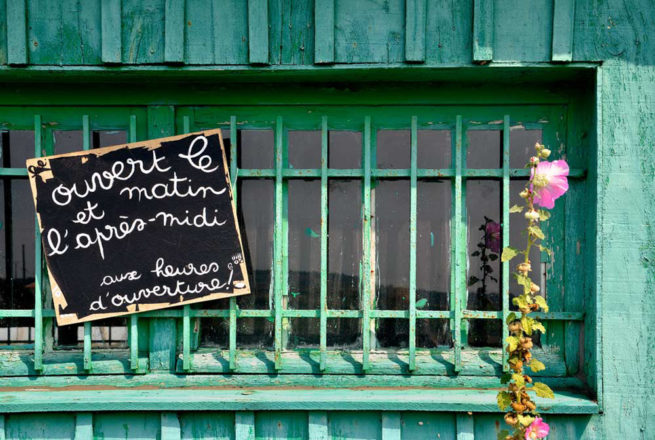 ouvert le
matin
et
l'après-midi
aux heures
d'ouverture!